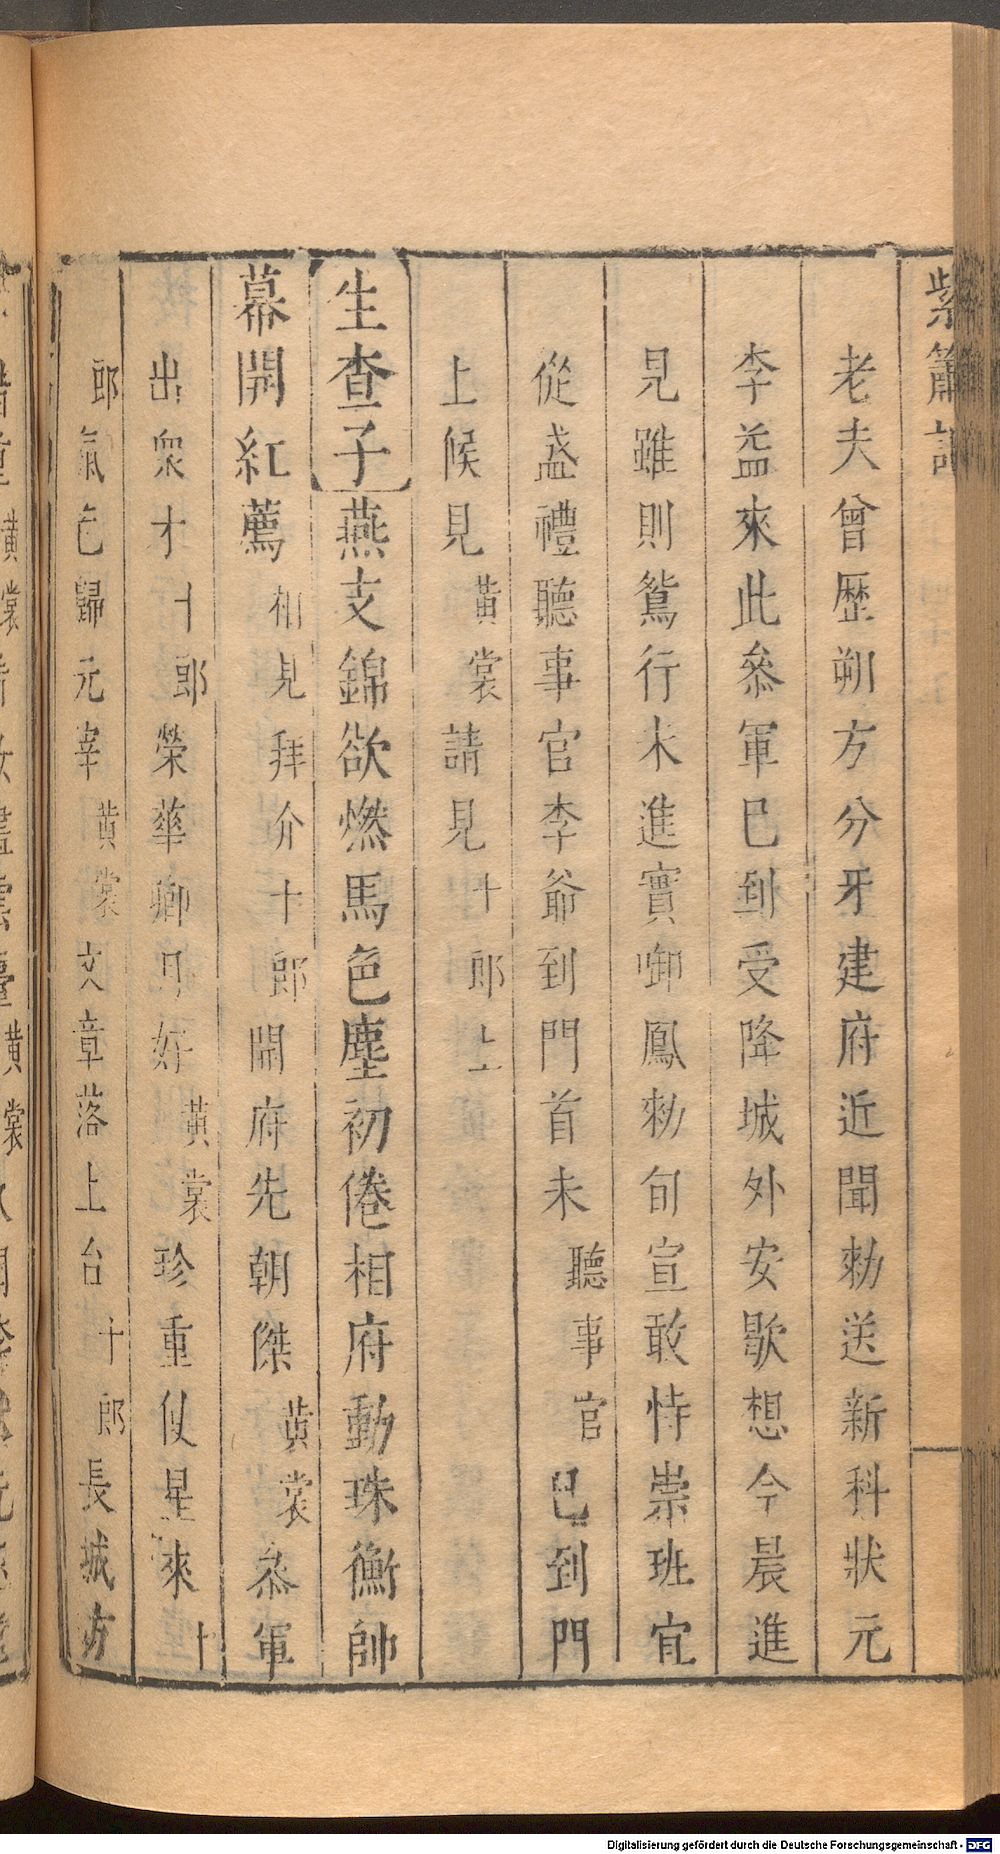 紫簫記
老夫曾歷朔方分牙建府近聞勑送新科狀元
李益來此叅軍巳到受降城外安歇想今晨進
見雖則鴛行未進實啣鳳勑旬宣敢恃崇班宜
從盛禮聽事官李爺到門首未聽事官巳到門
上候見黃裳請見十郎上
生查子燕支錦欲燃馬色塵初倦相府動珠衡帥
幕開紅薦相見拜介十郎開府先朝傑黃裳叅軍
出衆才十郎榮華卿月好黃裳珍重使星來十
郎氣色歸元宰黃裳文章落上台十郎長城方
Digitalisierung gefördert durch die Deutsche Forschungsgemeinschaft - DFG